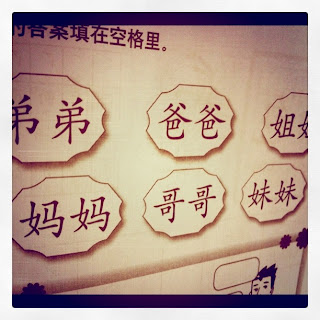 的答案填在空格里。
弟弟 爸爸 姐
妈妈 哥哥 妹妹